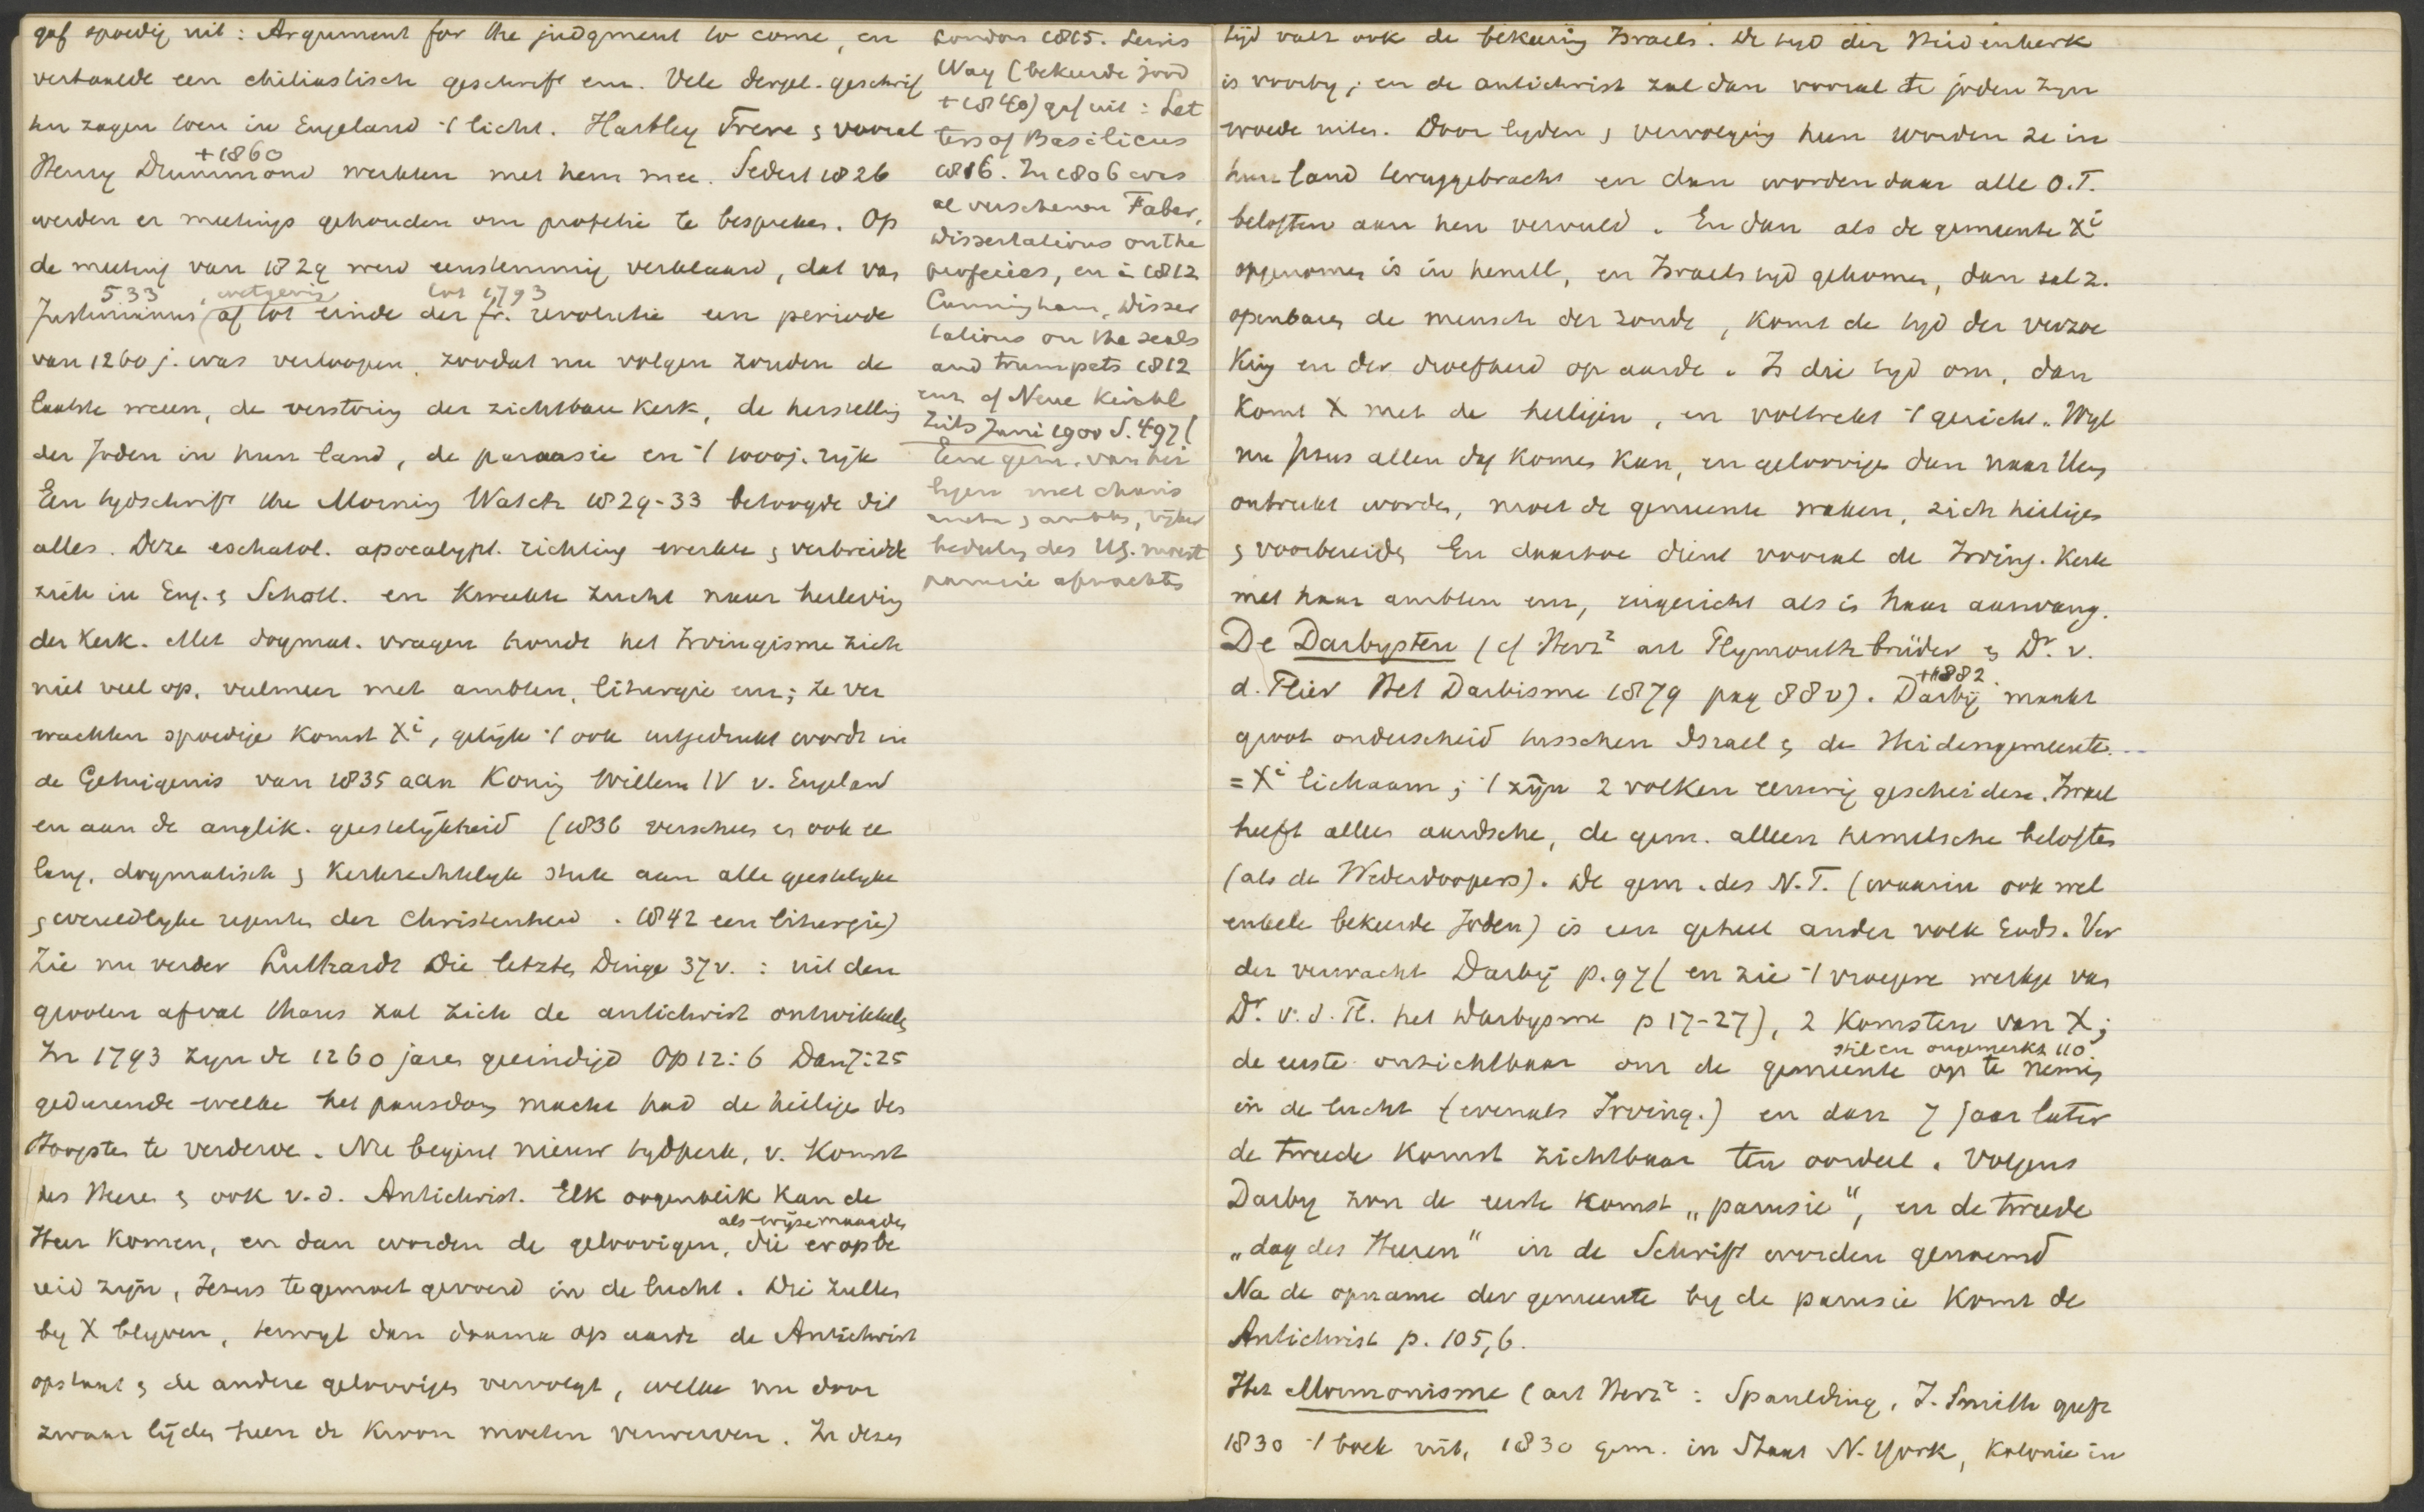 gaf spoedig uit: Argument for the judgment to come, en
vertaalde een chiliastisch geschrift enz. Vele dergel. geschrif
ten zagen toen in Engeland 't licht. Hartley Frere & vooral
+1860
Henry Drummond werkten met hem mee. Sedert 1826
werden er meetings gehouden om profetie te bespreken. Op
de meeting van 1829 werd eenstemmig verklaard, dat van
533 , wetgeving tot 1793
Justinianus af tot einde der fr. revolutie een periode
van 1260 j. was verloopen, zoodat nu volgen zouden de
laatste weeën, de verstoring der zichtbare kerk, de herstelling
der Joden in hun land, de parousie en 't 1000j. rijk
Een tydschrift the Morning Watch 1829-33 betoogde dit
alles. Deze eschatol. apocalypt. richting werkte & verbreidde
zich in Eng. & Schotl. en kweekte zucht naar herleving
der Kerk. Met dogmat. vragen houdt het Irvingisme zich
niet veel op, veelmeer met ambten, liturgie enz; ze ver
wachten spoedige komst Xi, gelijk 't ook uitgedrukt wordt in
de Getuigenis van 1835 aan Koning Willem IV v. Engeland
en aan de anglik. geestelijkheid (1836 verscheen er ook ee
lang, dogmatisch & Kerkrechtelyk stuk aan alle geestelyke
& wereldlyke regenten der Christenheid. 1842 een liturgie)
Zie nu verder Luthardt Die letzten Dinge 37v. : uit den
grooten afval thans zal zich de antichrist ontwikkelen
In 1793 zyn de 1260 jaren geeindigd Op 12:6 Dan 7:25
gedurende welke het pausdom macht had de heilige des
Hoogsten te verderve. Nu begint nieuw tydperk, v. Komst
des Heeren & ook v.d. Antichrist. Elk oogenblik kan de
als wijze maagden
Heer komen, en dan worden de geloovigen, die erop be
reid zijn, Jezus tegemoet gevoerd in de lucht. Die zullen
by X blyven, terwyl dan daarna op aarde de Antichrist
opstaat & de andere geloovigen vervolgt, welke nu door
zwaar lijden heen de kroon moeten verwerven. In dezen
London 1815. Lewis
Way (bekeerde jood
+1840) gaf uit: Let
ters of Basilicus
1816. In 1806 was
al verschenen Faber,
Dissertations on the
profecies, en in 1812
Cunningham, Disser
tations on the seals
and trumpets 1812
enz cf Neue Kirchl
Zeits Juni 1900 S. 497(
Eene gem. van hei
ligen met charis
mata & ambten, rijke
bedeeling des HG. moest
parousie afwachten
tijd valt ook de bekeering Israels. De tyd der Heidenkerk
is voorby; en de antichrist zal dan vooral te joden zyn
woede uiten. Door lyden & vervolging heen worden ze in
hun land teruggebracht en dan worden daar alle O.T.
beloften aan hen vervuld. En dan als de gemeente Xi
opgenomen is in hemel, en Israels tyd gekomen, dan zal z.
openbaren de mensch der zonde, komt de tyd der verzoe
king en der droefheid op aarde. Is die tyd om, dan
komt X met de heiligen, en voltrekt 't gericht. Wyl
nu Jezus allen dag komen kan, en geloovigen dan naar Hem
ontrukt worden, moet de gemeente waken, zich heiligen
& voorbereiden En daartoe dient vooral de Irving. Kerk
met haar ambten enz, ingericht als in haar aanvang.
De Darbysten (cf Herz2 art Plymouth brüder & Dr. v.
+1882.
d. Flier Het Darbisme 1879 pag 88v). Darbij maakt
groot onderscheid tusschen Israel & de Heidengemeente...
= Xi lichaam; 't zijn 2 volken eeuwig gescheiden. Israel
heeft alles aardsche, de gem. alleen hemelsche beloften
(als de Wederdoopers). De gem. des N.T. (waarin ook wel
enkele bekeerde Joden) is een geheel ander volk Gods. Ver
der verwacht Darbij p. 97( en zie 't vroegere werkje van
Dr. v. d. Fl. het Darbysme p 17-27), 2 Komsten van X;
stil en ongemerkt 110
de eerste onzichtbaar om de gemeente op te nemen
in de lucht (evenals Irving.) en dan 7 jaar later
de tweede komst zichtbaar ten oordeel. Volgens
Darby zou de eerste komst „parusie", en de tweede
„dag des Heeren" in de Schrift worden genoemd
Na de opname der gemeente by de parusie komt de
Antichrist p. 105,6.
Het Mormonisme (art Herz2: Spaulding, J. Smith geeft
1830 't boek uit, 1830 gem. in Staat N. York, Kolonie in